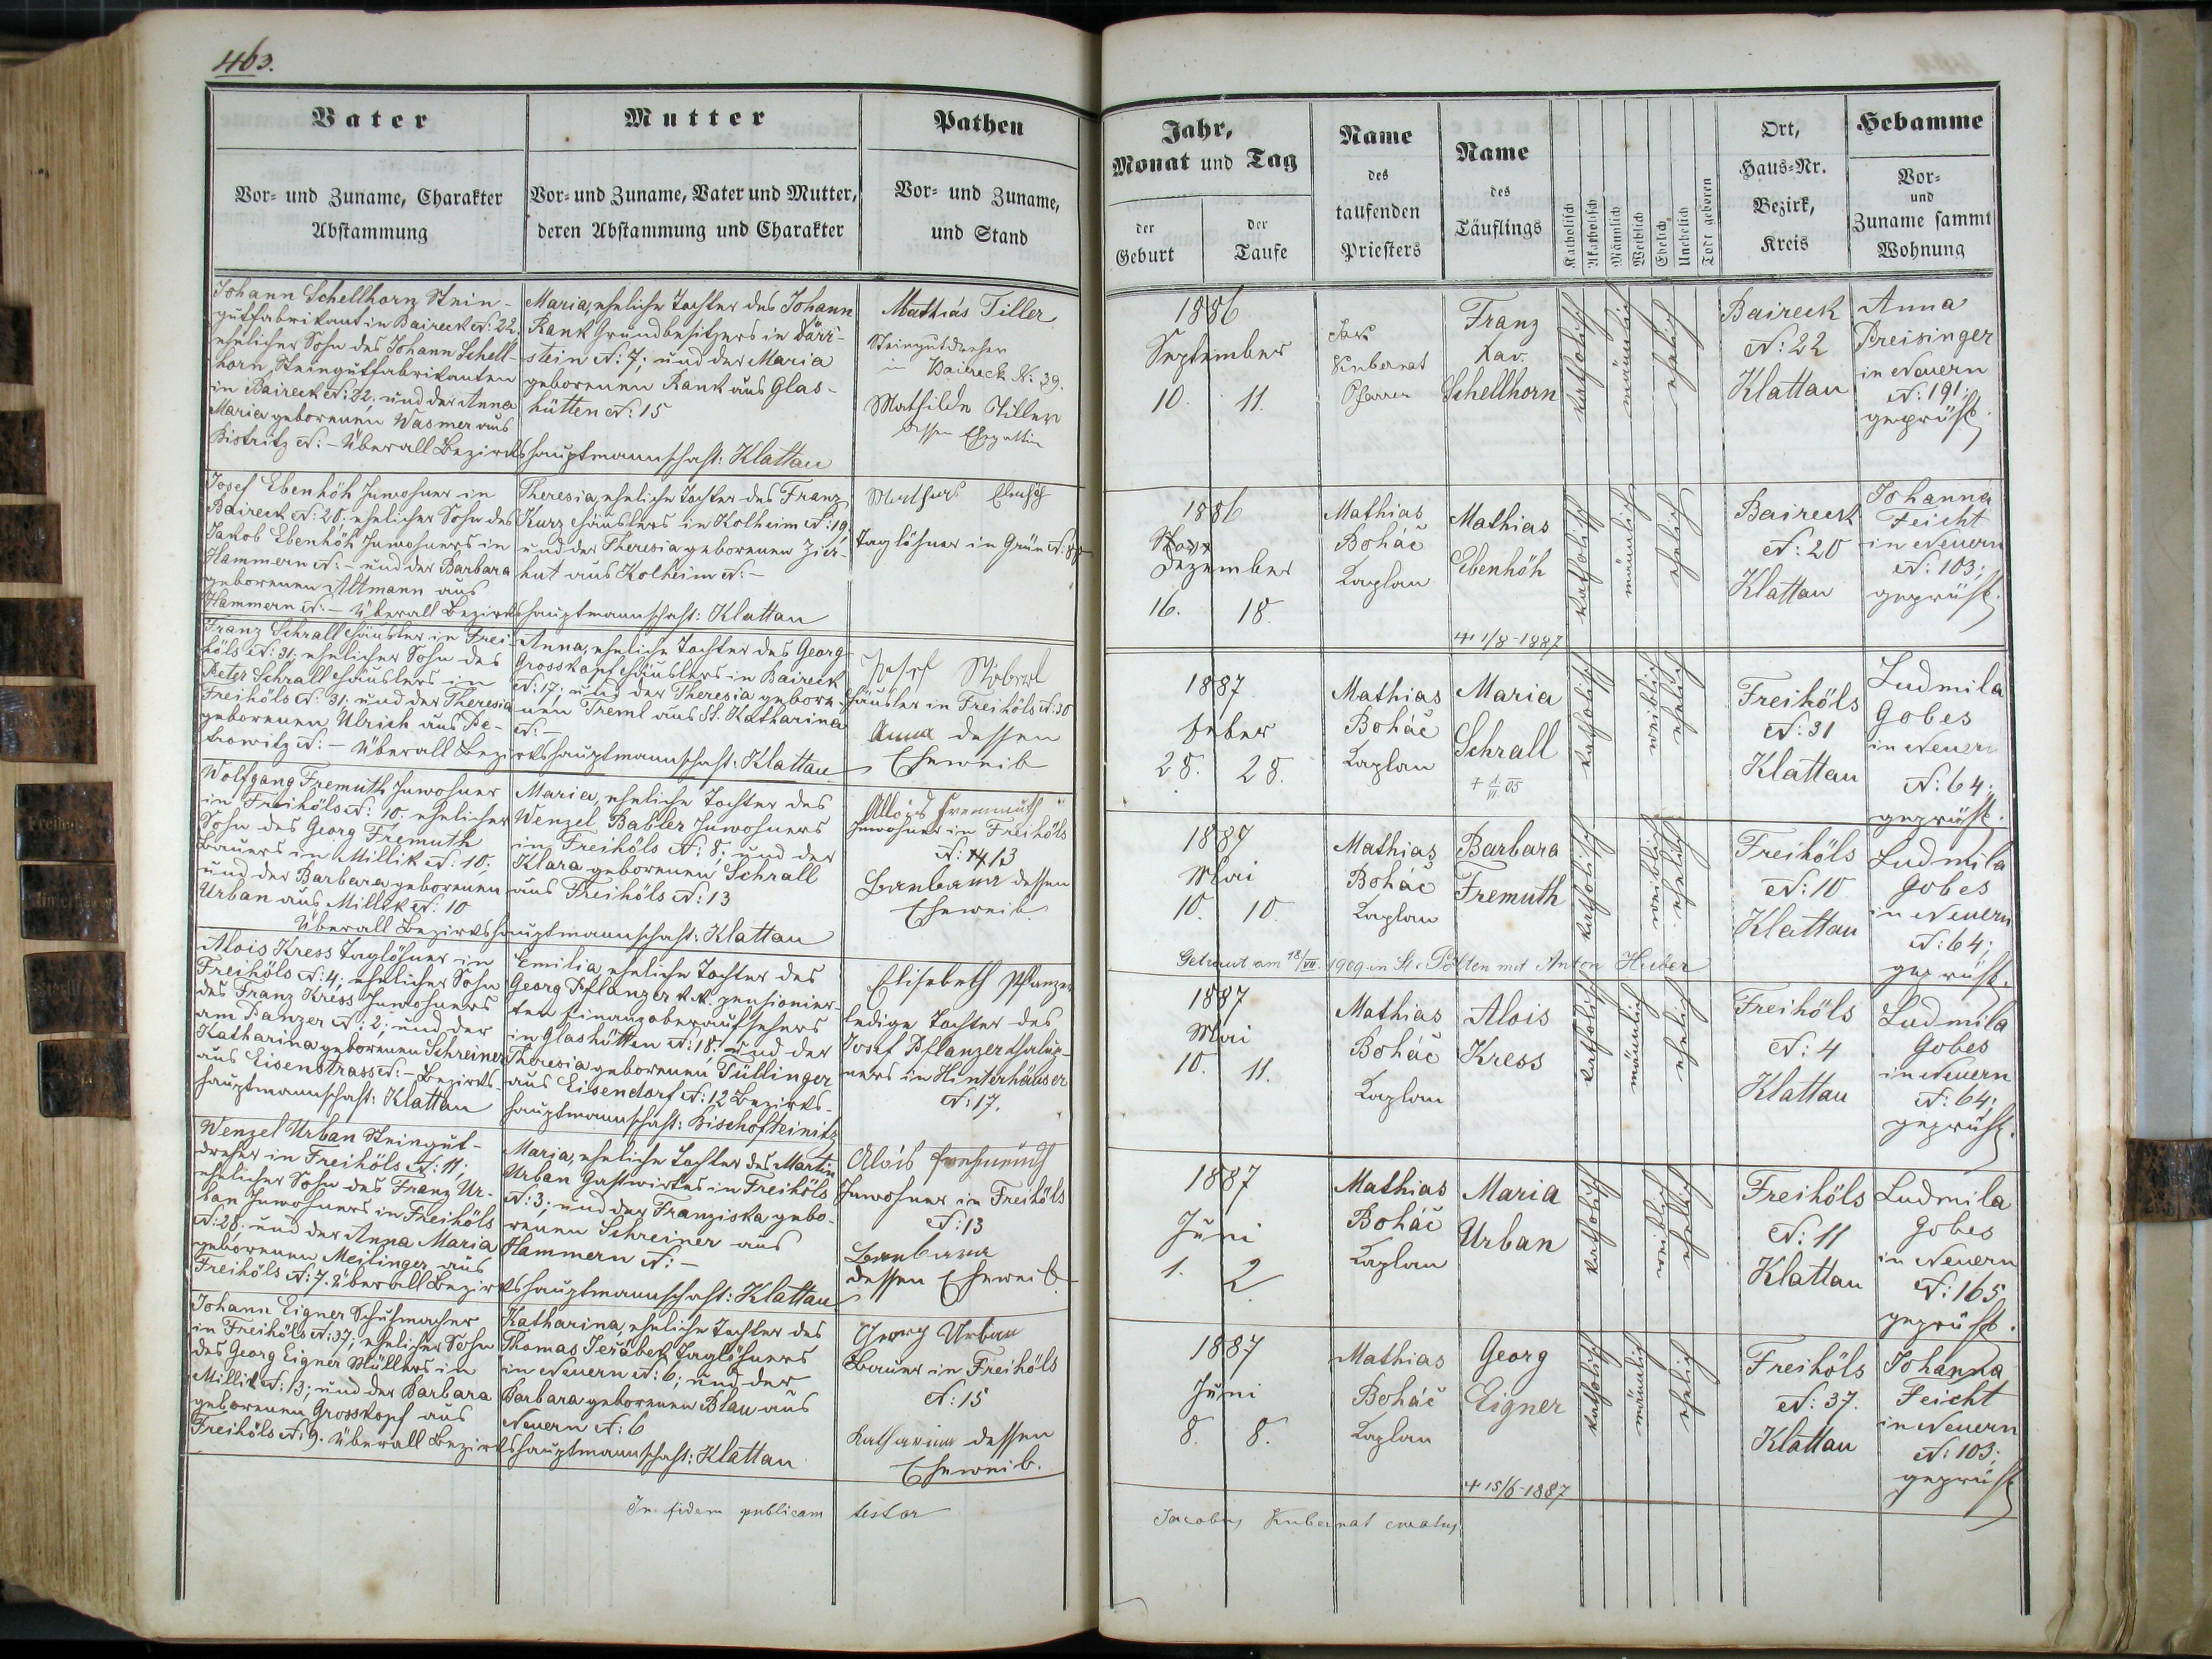 463.
Vater
Vor- und Zuname, Charakter
Abstammung
Mutter
Vor- und Zuname, Vater und Mutter,
deren Abstammung und Charakter
Pathen
Vor- und Zuname,
und Stand
Johann Schellhorn Stein-
gutfabrikant in Baireck N: 22.
ehelicher Sohn des Johann Schell-
horn, Steingutfabrikanten
in Baireck N: 22. und der Anna
Maria geborenen Wasmer aus
Bistritz N: – Überall Bezirkshauptmannschaft: Klattau
Maria, eheliche Tochter des Johann
Rank Grundbesitzers in Dörr-
stein N: 7; und der Maria
geborenen Rank aus Glas-
hütten N: 15
Mathias Tiller
Steingutdreher
in Baireck N: 39.
Mathilde Tiller
dessen Ehegattin
Josef Ebenhöh Inwohner in
Baireck N: 20. ehelicher Sohn des
Jakob Ebenhöh Inwohners in
Hammern N: – und der Barbara
geborenen Altmann aus
Hammern N: – Überall Bezirkshauptmannschaft: Klattau
Theresia, eheliche Tochter des Franz
Kurz Häuslers in Kolheim N: 19.
und der Theresia geborenen Zier-
hut aus Kolheim N: –
Mathias
Taglöhner in Grün N:
Franz Schrall Häusler in Frei-
höls N: 31; ehelicher Sohn des
Peter Schrall Häuslers in
Freihöls N: 31; und der Theresia
geborenen Ulrich aus Pe-
trowitz N: – Überall Bezirkshauptmannschaft: Klattau
Anna, eheliche Tochter des Georg
Grosskopf Häuslers in Baireck
N: 17; und der Theresia gebore-
nen Treml aus St. Katharina
N: –
Josef Stöberl
Häusler in Freihöls N: 30
Anna dessen
Eheweib
Wolfgang Fremuth Inwohner
in Freihöls N: 10. ehelicher
Sohn des Georg Fremuth
Bauers in Millik N: 10;
und der Barbara geborenen
Urban aus Millik N: 10
Überall Bezirkshauptmannschaft: Klattau
Maria, eheliche Tochter des
Wenzel Babler Inwohners
in Freihöls N: 8; und der
Klara geborenen Schrall
aus Freihöls N: 13
Alois Fremuth
Inwohner in Freihöls
N: 13
Barbara dessen
Eheweib
Alois Kress Taglöhner in
Freihöls N: 4; ehelicher Sohn
des Franz Kress Inwohners
am Panzer N: 2; und der
Katharina geborenen Schreiner
aus Eisenstrass N: – Bezirks-
hauptmannschaft: Klattau
Emilia, eheliche Tochter des
Georg Pflanzer k.k. pensionier-
ten Finanzoberaufsehers
in Glashütten N: 18. und der
Theresia geborenen Tüllinger
aus Eisendorf N: 12 Bezirks-
hauptmannschaft: Bischofteinitz
Elisabeth Pflanzer
ledige Tochter des
Josef Pflanzer Chalup-
ners in Hinterhäuser
N: 17.
Wenzel Urban Steingut-
dreher in Freihöls N: 11;
ehelicher Sohn des Franz Ur-
ban Inwohners in Freihöls
N: 28. und der Anna Maria
geborenen Meilinger aus
Freihöls N: 7. Überall Bezirkshauptmannschaft: Klattau
Maria, eheliche Tochter des Martin
Urban Gastwirtes in Freihöls
N: 3; und der Franziska gebo-
renen Schreiner aus
Hammern N: –
Alois Fremuth
Inwohner in Freihöls
N: 13
Barbara
dessen Eheweib
Johann Eigner Schuhmacher
in Freihöls N: 37; ehelicher Sohn
des Georg Eigner Müllers in
Millik N: 13; und der Barbara
geborenen Grosskopf aus
Freihöls N: 9. Überall Bezirkshauptmannschaft: Klattau
Katharina, eheliche Tochter des
Thomas Jeřábek Taglöhners
in Neuern N: 6; und der
Barbara geborenen Blau aus
Neuern N: 6
Georg Urban
Bauer in Freihöls
N: 15
Katharina dessen
Eheweib.
In fidem publicam testor
Jahr,
Monat und Tag
der
Geburt
der
Taufe
Name
des
taufenden
Priesters
Name
des
Täuflings
Katholisch
Akatholisch
Männlich
Weiblich
Ehelich
Unehelich
Todt geboren
Ort,
Haus-Nr.
Bezirk,
Kreis
Hebamme
Vor-
und
Zuname sammt
Wohnung
1886
September
10. 11.
Jak.
Kubernat
Pfarrer
Franz
Xav.
Schellhorn
katholisch
männlich
ehelich
Baireck
N: 22
Klattau
Anna
Preisinger
in Neuern
N: 191;
geprüft.
1886
Dezember
16. 18.
Mathias
Boháč
Kaplan
Mathias
Ebenhöh
+ 1/8-1887
katholisch
männlich
ehelich
Baireck
N: 20
Klattau
Johanna
Feicht
in Neuern
N: 103;
geprüft.
1887
Feber
28. 28.
Mathias
Boháč
Kaplan
Maria
Schrall
katholisch
weiblich
ehelich
Freihöls
N: 31
Klattau
Ludmila
Gobes
in Neuern
N: 64;
geprüft.
1887
Mai
10. 10.
Mathias
Boháč
Kaplan
Barbara
Fremuth
katholisch
weiblich
ehelich
Freihöls
N: 10
Klattau
Ludmila
Gobes
in Neuern
N: 64;
geprüft.
Getraut am 18/VII. 1909 in St. Pölten mit Anton Huber
1887
Mai
10. 11.
Mathias
Boháč
Kaplan
Alois
Kress
katholisch
männlich
ehelich
Freihöls
N: 4
Klattau
Ludmila
Gobes
in Neuern
N: 64;
geprüft.
1887
Juni
1. 2
Mathias
Boháč
Kaplan
Maria
Urban
katholisch
weiblich
ehelich
Freihöls
N: 11
Klattau
Ludmila
Gobes
in Neuern
N: 165
geprüft.
1887
Juni
8. 8.
Mathias
Boháč
Kaplan
Georg
Eigner
+ 15/6-1887
katholisch
männlich
ehelich
Freihöls
N: 37.
Klattau
Johanna
Feicht
in Neuern
N: 103;
geprüft
Jacobus Kubernat curatus